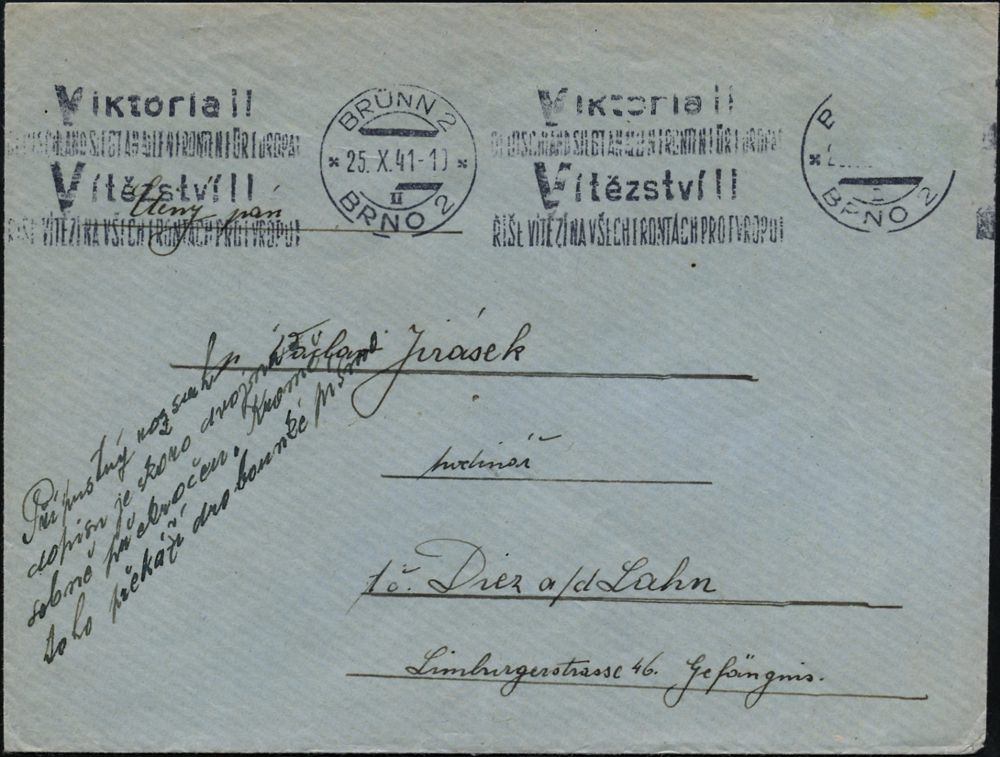 Viktoria!!
DEUTSCHLAND SIEGT AN ALLEN FRONTEN FÜR EUROPA!
Vítězství!!
ŘÍŠE VÍTĚZÍ NA VŠECH FRONTÁCH PRO EVROPU!
BRÜNN 2
25. X. 41-10
II
BRNO 2
Viktoria!!
DEUTSCHLAND SIEGT AN ALLEN FRONTEN FÜR EUROPA!
Vítězství!!
ŘÍŠE VÍTĚZÍ NA VŠECH FRONTÁCH PRO EVROPU!
B
BRNO 2
Ctěný pán
p. Václav Jirásek
hodinář
tč. Diez a/d Lahn
Limburgerstrasse 46. Gefängnis.
Přípustný rozsah
dopisu je skoro dvojná-
sobně překročen. Kromě
toho překáží drobounké písmo